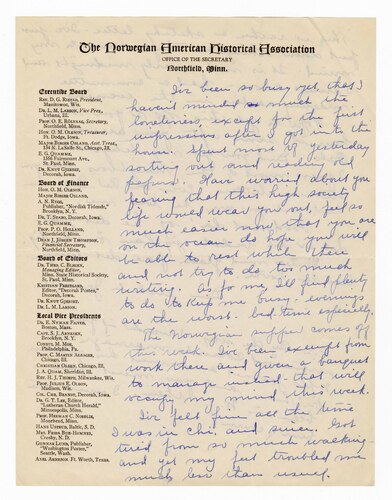 The Norwegian American Historical Association
OFFICE OF THE SECRETARY
Northfield, Minn.
Executive Board
President,
Manitowoc, Wis.
DR. L. M. LARSON, Vice Pres.,
Urbana, Ill.
PROF. O. E. RÖLVAAG, Secretary,
Northfield, Minn.
HON. O. M. OLESON, Treasurer,
Ft. Dodge, Iowa.
MAJOR BIRGER OSLAND, Asst. Treas.,
134 N. LaSalle St., Chicago, Ill.
1556 Fairmount Ave.,
St. Paul, Minn.
DR. KNUT GJERSET,
Decorah, Iowa.
Board of Finance
HON. O. M. OLESON.
MAJOR BIRGER OSLAND.
A. N. RYGG,
Publisher, "Nordisk Tidende",
Brooklyn, N. Y.
Decorah, Iowa.
PROF. P. O. HOLLAND,
Northfield, Minn.
DEAN J. JÖRGEN THOMPSON,
Financial Secretary,
Northfield, Minn.
Board of Editors
DR. THEO. C. BLEGEN,
Managing Editor,
Minn. State Historical Society,
St. Paul, Minn.
KRISTIAN PRESTGARD,
Editor, "Decorah Posten",
Decorah, Iowa.
DR. KNUT GJERSET.
DR. L. M. LARSON.
Local Vice Presidents
Boston, Mass.
Brooklyn, N. Y.
Philadelphia, Pa.
Chicago, Ill.
CHRISTIAN OLSEN, Chicago, Ill.
Milwaukee, Wis.
PROF. JULIUS E. OLSON,
Madison, Wis.
Decorah, Iowa.
DR. G. T. LEE, Editor,
"Lutheran Church Herald",
Minneapolis, Minn.
Moorhead, Minn.
Crosby, N. D.
GUNNAR LUND, Publisher,
"Washington Posten",
Seattle, Wash.
Ft. Worth, Texas.
I've been so busy yet, that I
haven't minded so much the
loneliness, except for the first
impressions after I got into the
house. Spent most of yesterday
sorting out and reading old
papers. Have worried about you
fearing that this high society
life would wear you out, feel so
much easier now that you are
on the ocean - do hope you will
be able to rest while there
and not try to do too much
writing. As for me, I'll find plenty
to do to keep me busy - evenings
are the worst. bed-time especially.
The Norwegian supper comes off
this week. I've been excused from
work there and given a banquet
to manage instead - that will
occupy my mind this week.
I've felt fine all the time
I was in Chi. and since. Got
tired from so much walking -
and yet my feet troubled me
much less than usual.